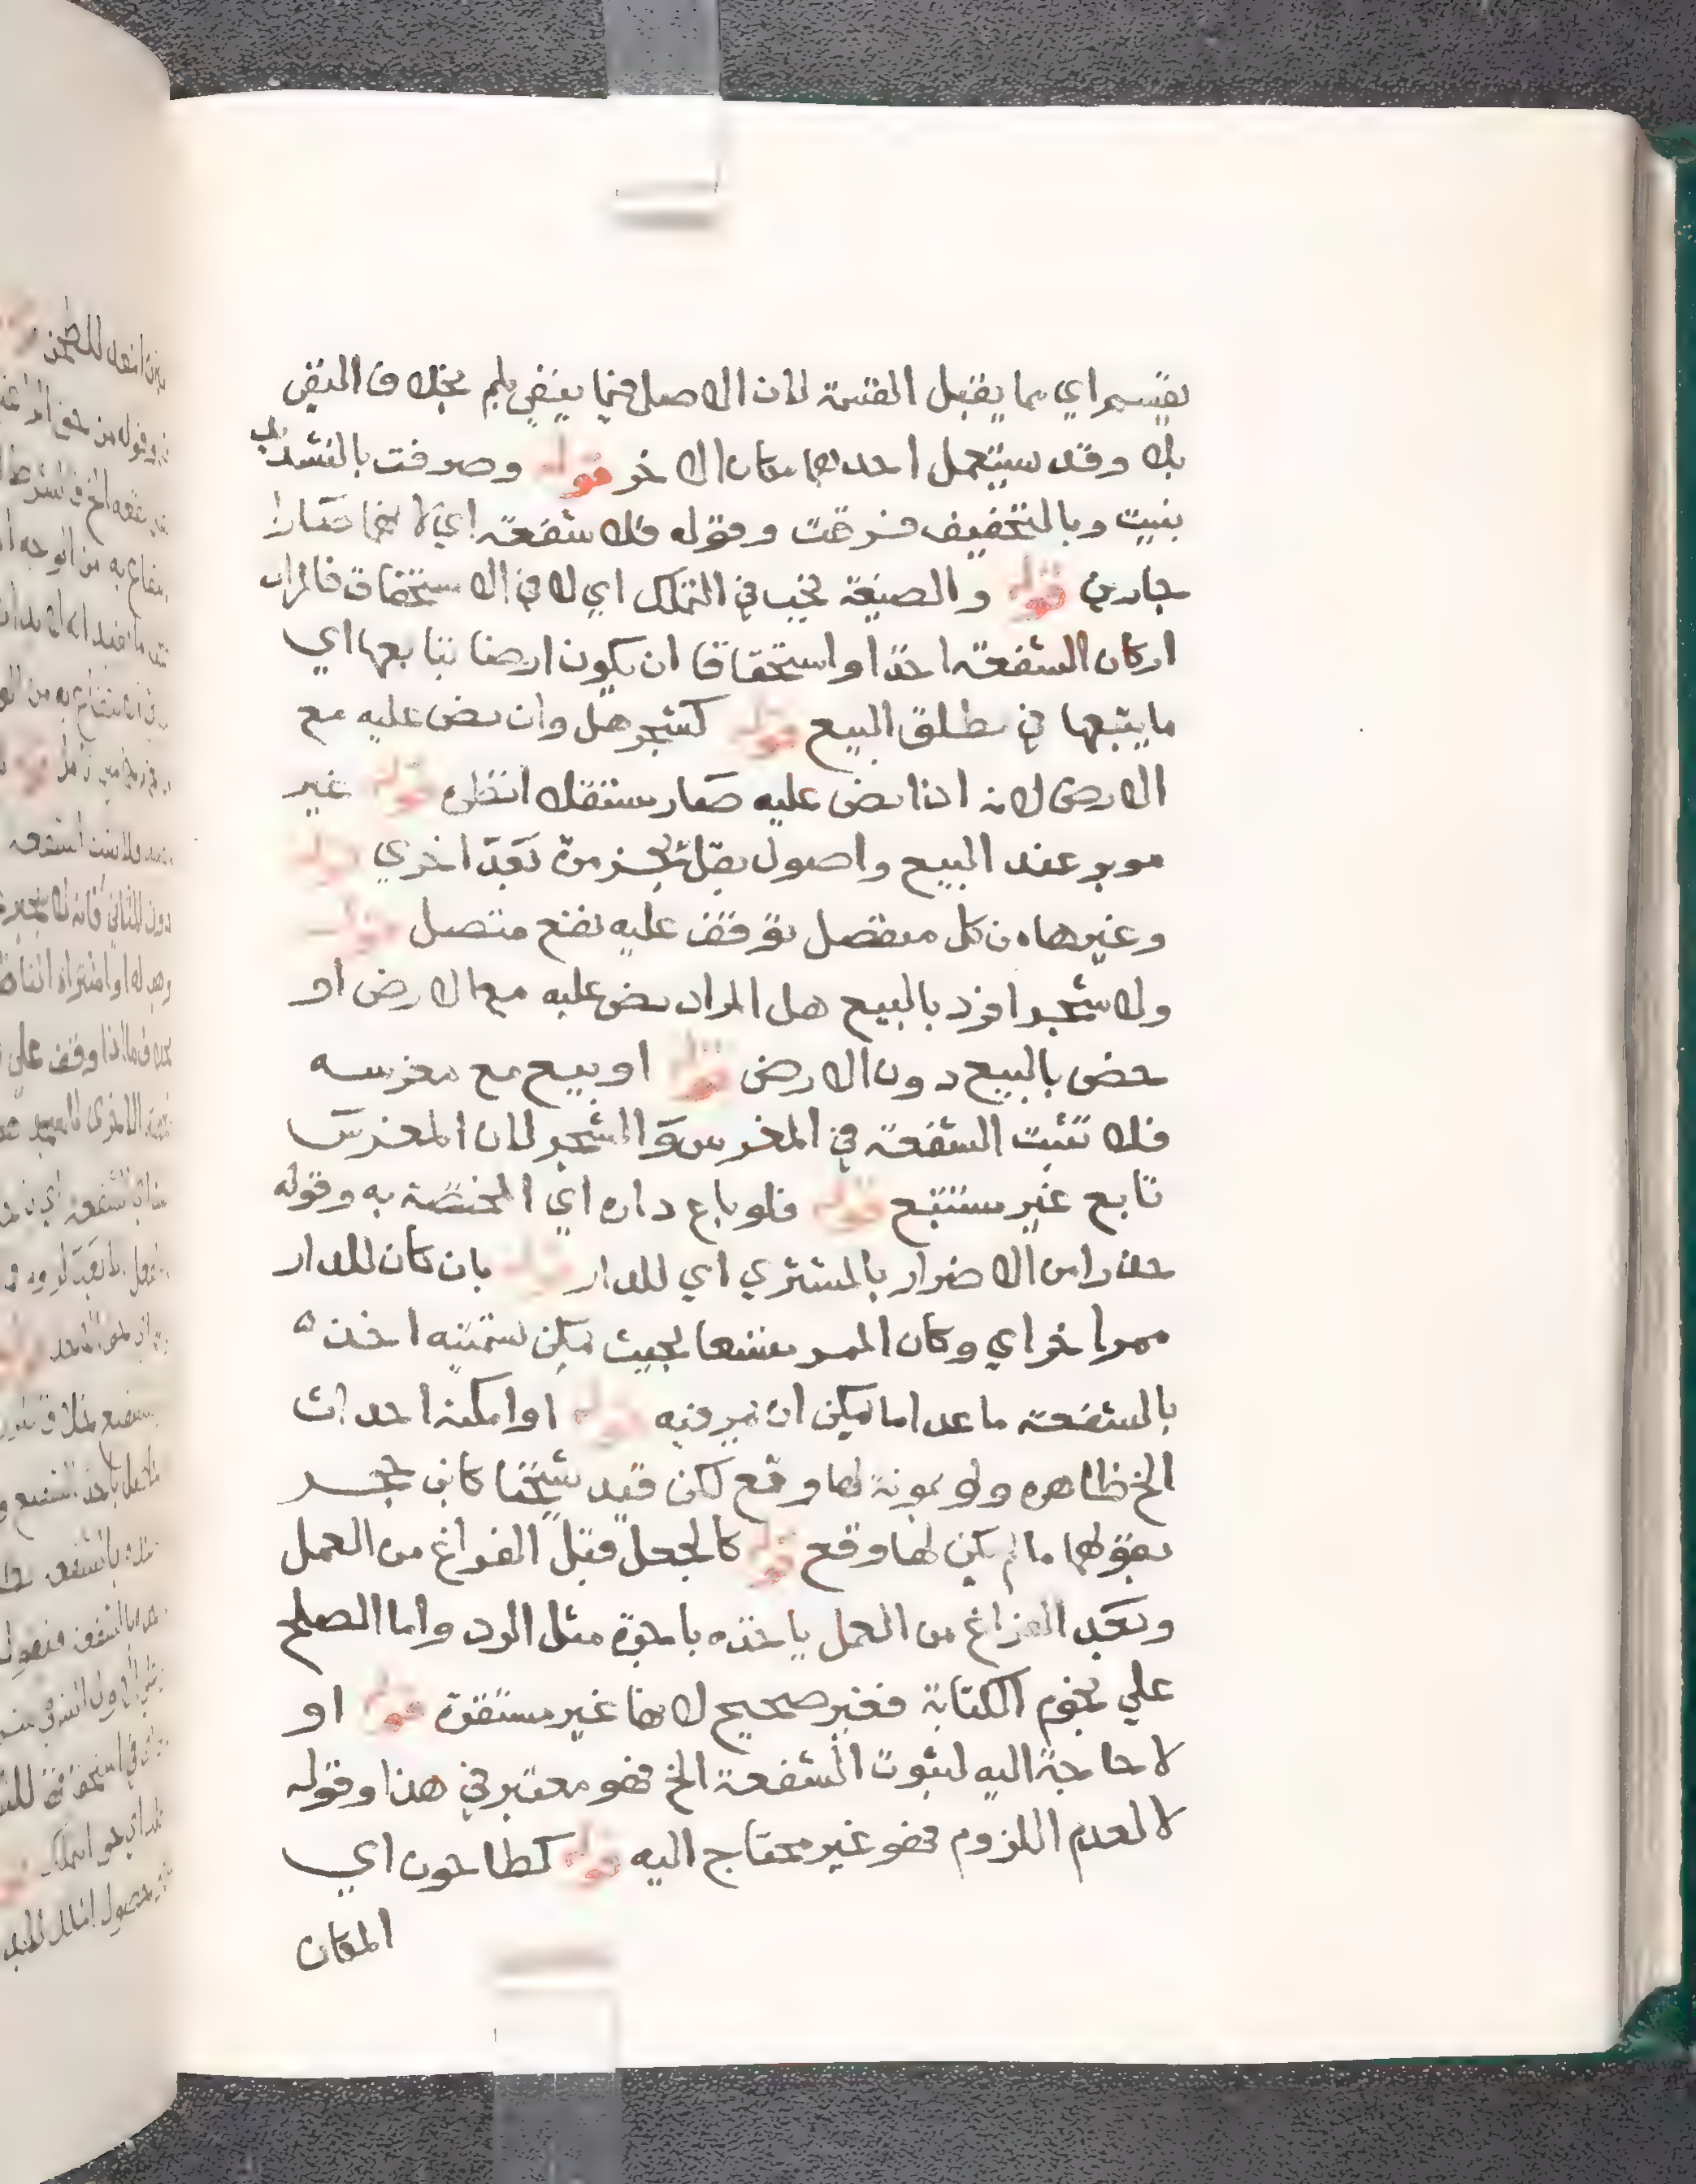 يقسم اي مما يقبل القسمة لان الاصل فيما ينفي بلم بخلاف النفي
بلا وقد يستعمل احدهما مكان الاخر قوله وصرفت بالتشديد
بنيت وبالتخفيف فرقت وقوله فلا شفعة اي لانهما صارا
جارين قوله والصيغة تجب في التملك اي لا في الاستحقاق فالمراد
اركان الشفعة اخذا واستحقاقا ان يكون ارضا بتابعها اي
ما يتبعها في مطلق البيع قوله كشجر هل وان نص عليه مع
الارض لانه اذا نص عليه صار مستقلا انظره قوله غير
موبر عند البيع واصول بقل يجز مرة بعد اخري قوله
وغيرها من كل منفصل توقف عليه نفع متصل قوله
ولا شجر افرد بالبيع هل المراد نص عليه مع الارض او
خص بالبيع دون الارض قوله او بيع مع مغرسه
فلا تثبت الشفعة في المغرس والشجر لان المغرس
تابع غير مستتبع قوله فلو باع داره اي المختصة به وقوله
حذرا من الاضرار بالمشتري اي للدار قوله بان كان للدار
ممر اخر اي وكان الممر متسعا بحيث يمكن قسمته اخذه
بالشفعة ما عدا ما يمكن ان يمر فيه قوله او امكنه احداث
الخ ظاهره ولو بمونة لها وقع لكن قيد شيخنا كابن حجر
بقولهما ما لم يكن لها وقع قوله كالجعل قبل الفراغ من العمل
وبعد الفراغ من العمل ياخذه باجرة مثل الرد واما الصلح
علي نجوم الكتابة فغير صحيح لانها غير مستقرة قوله او
لا حاجة اليه لثبوت الشفعة الخ فهو معتبر في هذا وقوله
لا لعدم اللزوم فهو غير محتاج اليه قوله كطاحون اي
المكان